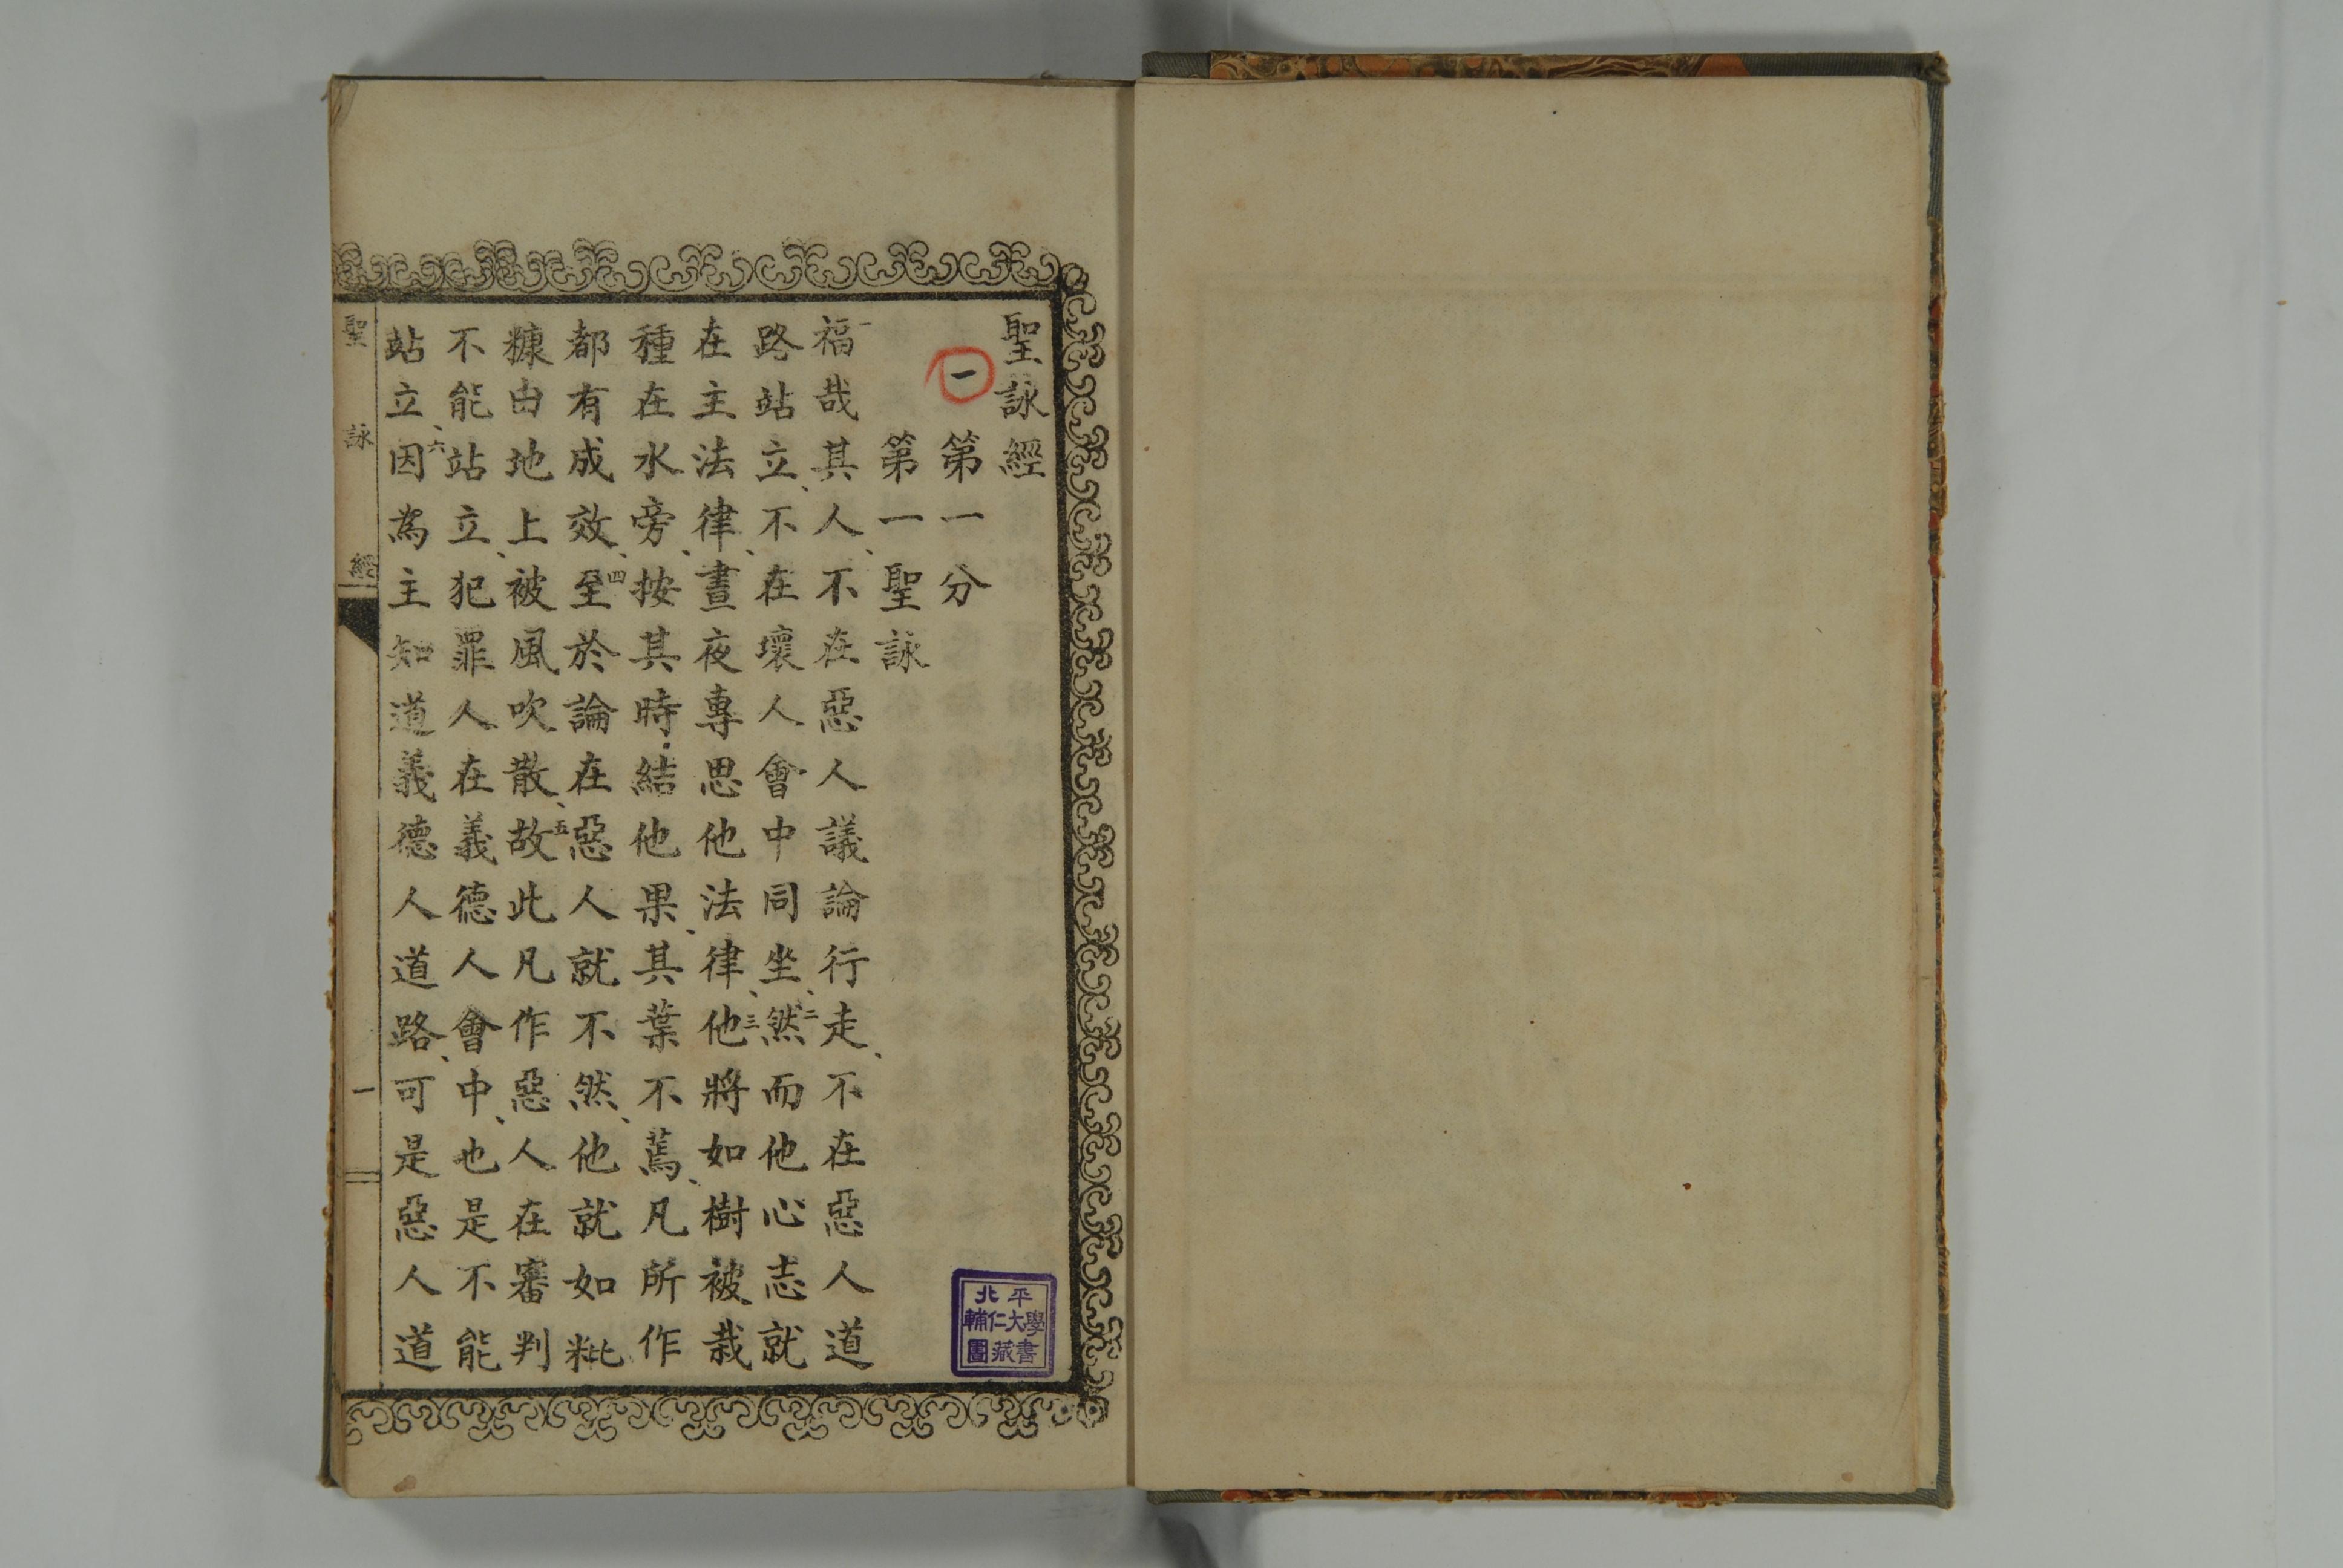 聖詠經
一 第一分
第一聖詠
一福哉其人、不在惡人議論行走、不在惡人道
路站立、不在壞人會中同坐、二然而他心志就
在主法律、晝夜專思他法律、三他將如樹被栽
種在水旁、按其時結他果、其葉不蔫、凡所作
都有成效、四至於論在惡人就不然、他就如粃
糠由地上被風吹散、五故此凡作惡人在審判
不能站立、犯罪人在義德人會中、也是不能
站立、六因為主知道義德人道路、可是惡人道
聖詠經
一
北平
輔仁大學
圖藏書